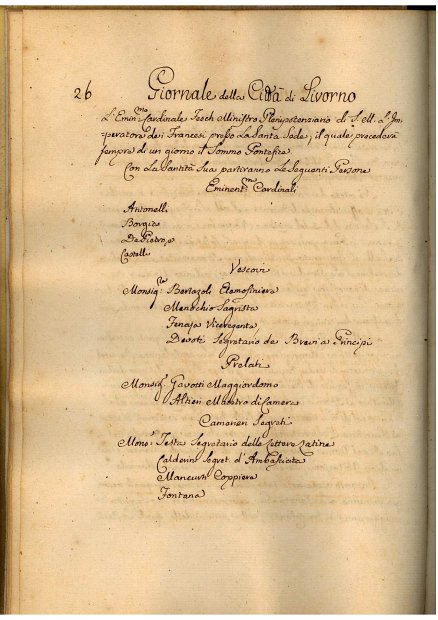 26 Giornale della Città di Livorno
L'Emin.mo Cardinale Fesch Ministro Plenipotenziario di S. M. l'Im-
peratore dei Francesi presso La Santa Sede, il quale procederà
sempre di un giorno il Sommo Pontefice
Con La Santità Sua partiranno Le Seguenti Persone
Eminent.mi Cardinali
Antonelli
Borgia
De Pietro, e
Caselli
Vescovi
Monsig.re Bertazoli Elemosiniere
Menochio Sagrista
Fenaja Vicegerente
Devoti Segretario de Brevi a Principi
Prelati
Monsig.r Gavotti Maggiordomo
Altieri Maestro di Camera
Camerieri Segreti
Mons.r Testa Segretario delle Lettere Latine
Calderini Segret. d'Ambasciata
Mancurti Coppiere
Fontana